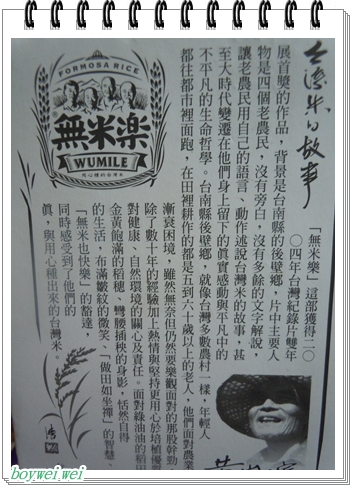 台灣米的故事
「無米樂」這部獲得二〇
〇四年台灣紀錄片雙年
展首獎的作品，背景是台南縣的後壁鄉，片中主要人
物是四個老農民，沒有旁白，沒有多餘的文字解說，
讓老農民用自己的語言、動作述說台灣米的故事，甚
至大時代變遷在他們身上留下的真實感動與平凡中的
不平凡的生命哲學。台南縣後壁鄉，就像台灣多數農村一樣，年輕人
都往都市裡面跑，在田裡耕作的都是五到六十歲以上的老人，他們面對農業
漸衰困境，雖然無奈但仍然要樂觀面對的那股幹勁
除了數十年的經驗加上熱情與堅持更用心於培植優
對健康、自然環境的關心及責任。面對綠油油的稻田
金黃飽滿的稻穗、彎腰插秧的身影，恬然自得
的生活，布滿皺紋的微笑、「做田如坐禪」的智慧、
「無米也快樂」的豁達，
同時感受到了他們的
真，與用心種出來的台灣米。
FORMOSA RICE
無米楽
WUMILE
用心種的台灣米
boywei.wei